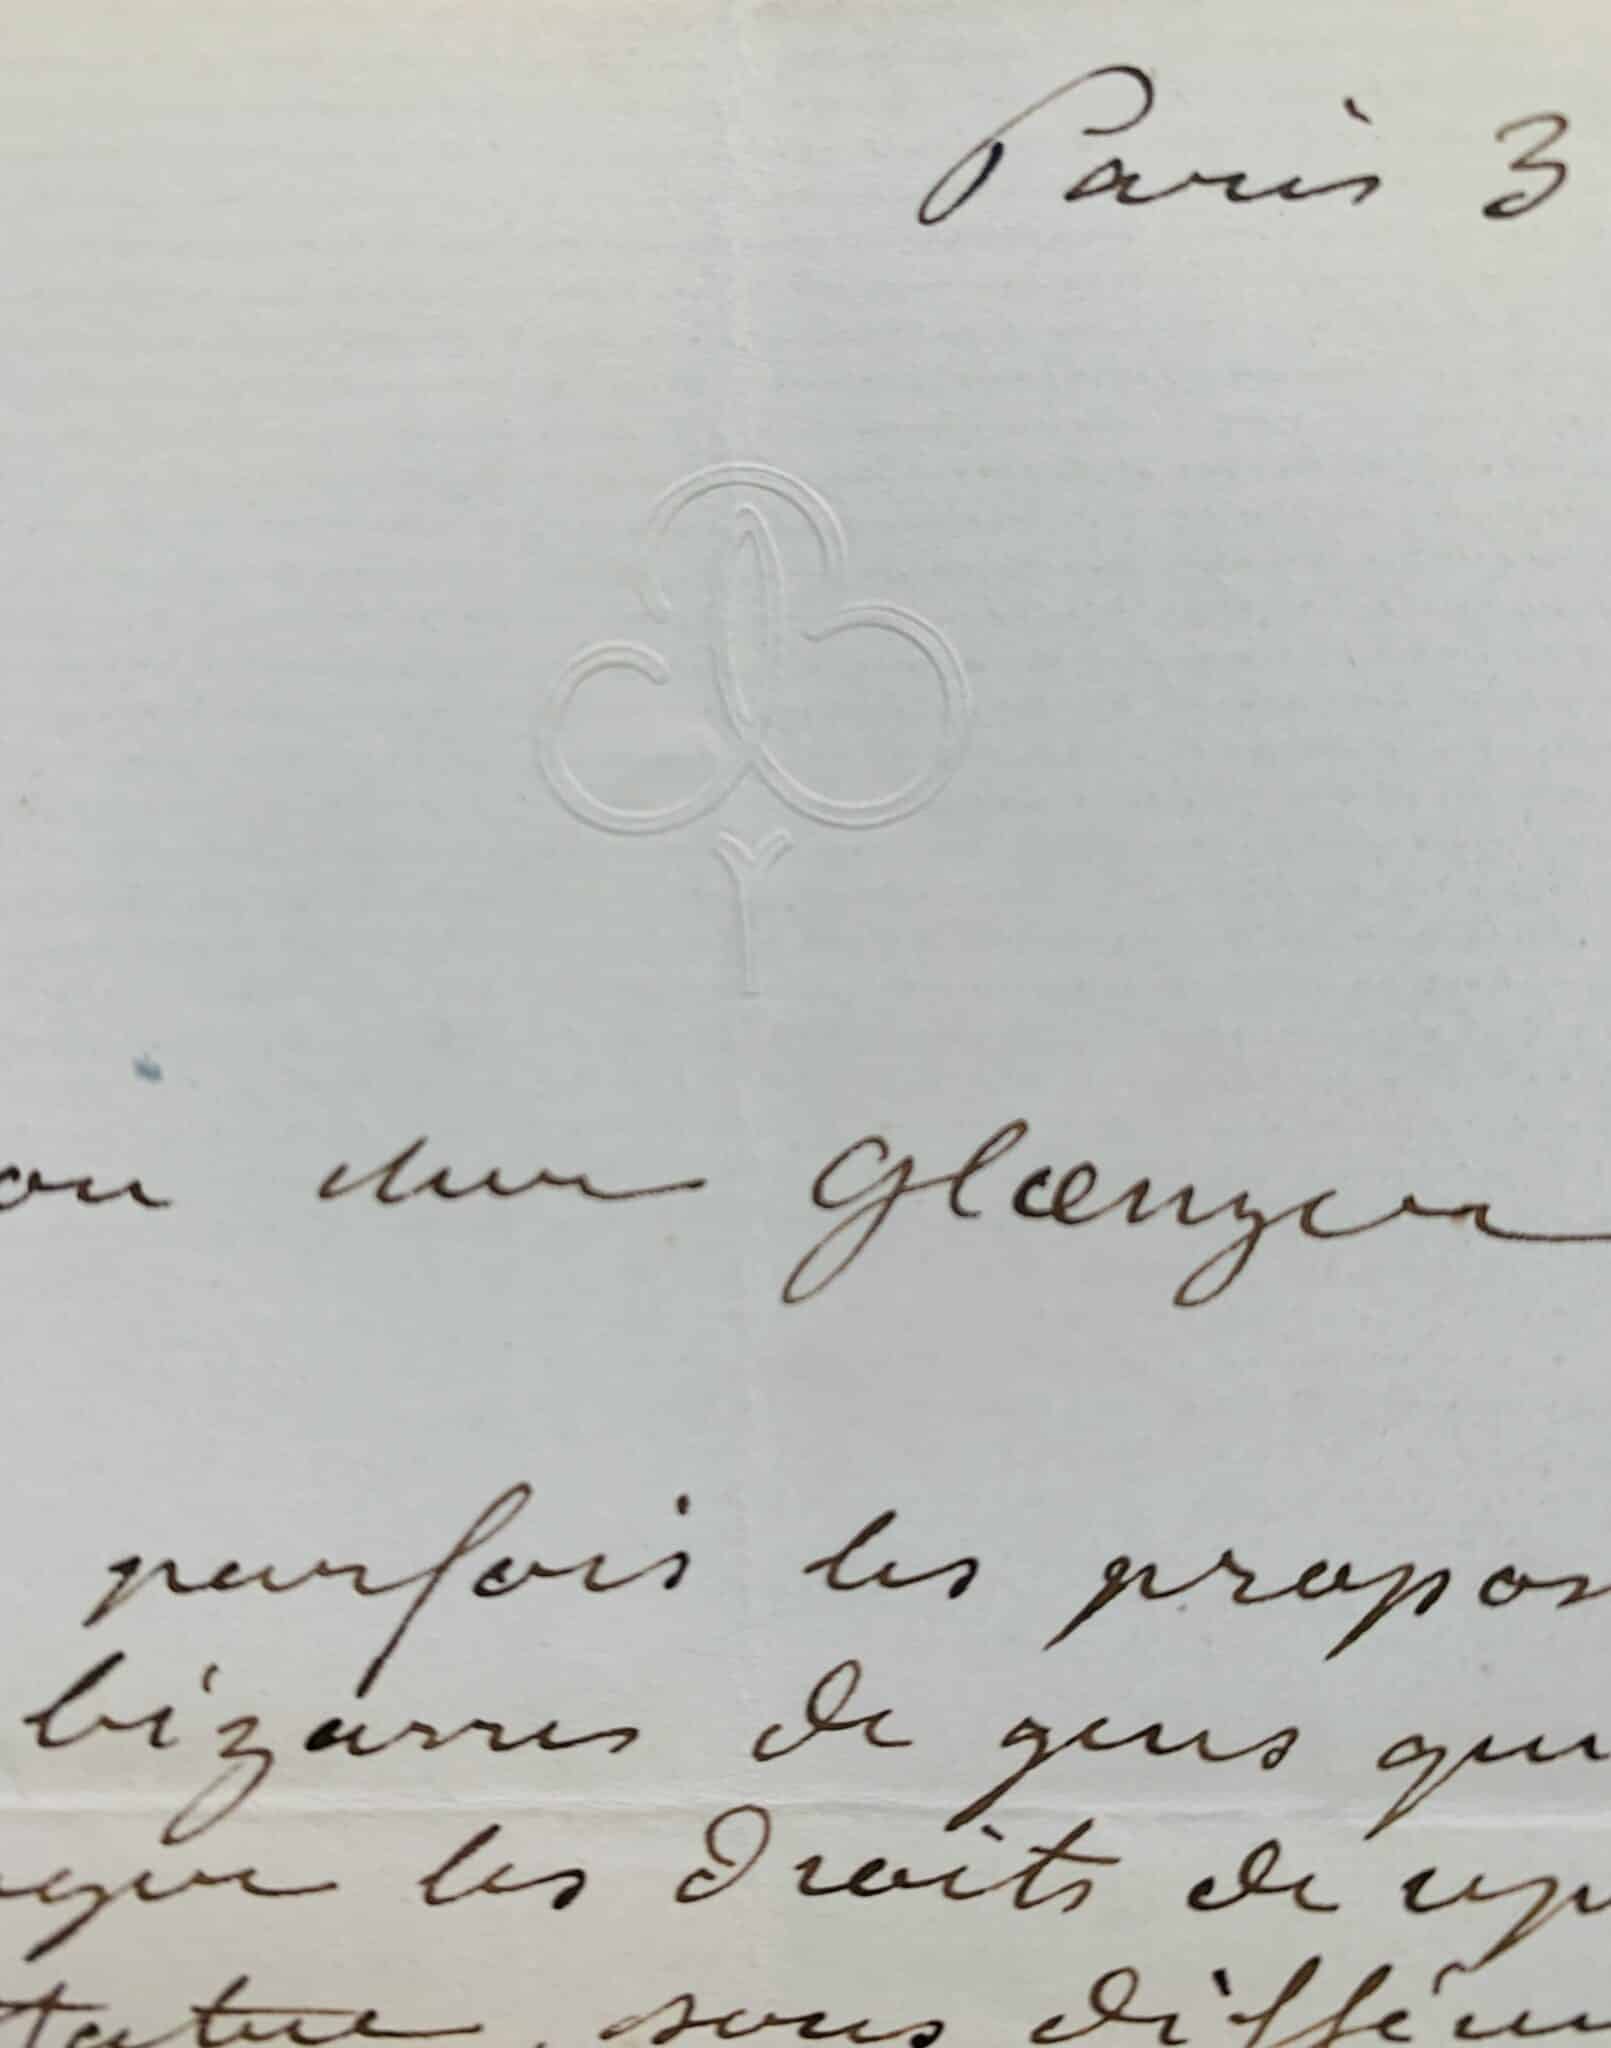 Paris 3
on cher Glœnzer
parfois les propos
bizarres de gens qui
les droits de rep
tatue, sous différ